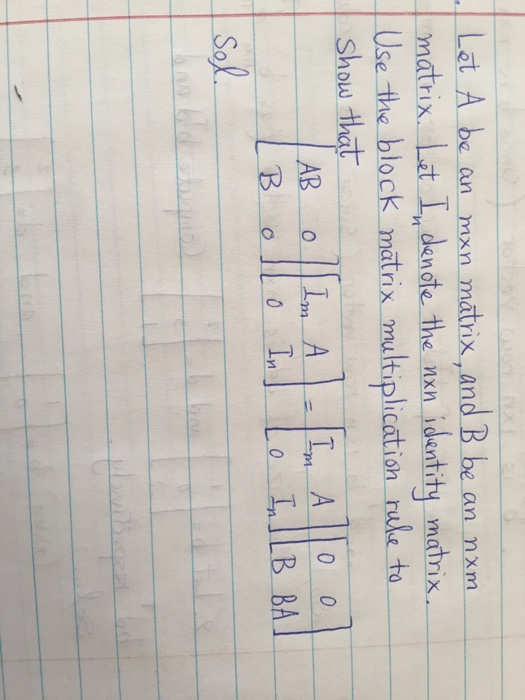 Let A be an mxn matrix, and B be an nxm
matrix. Let Iₙ denote the nxn identity matrix.
Use the block matrix multiplication rule to
show that
[AB 0; B 0] [Iₘ A; 0 Iₙ] = [Iₘ A; 0 Iₙ] [0 0; B BA]
Sol.